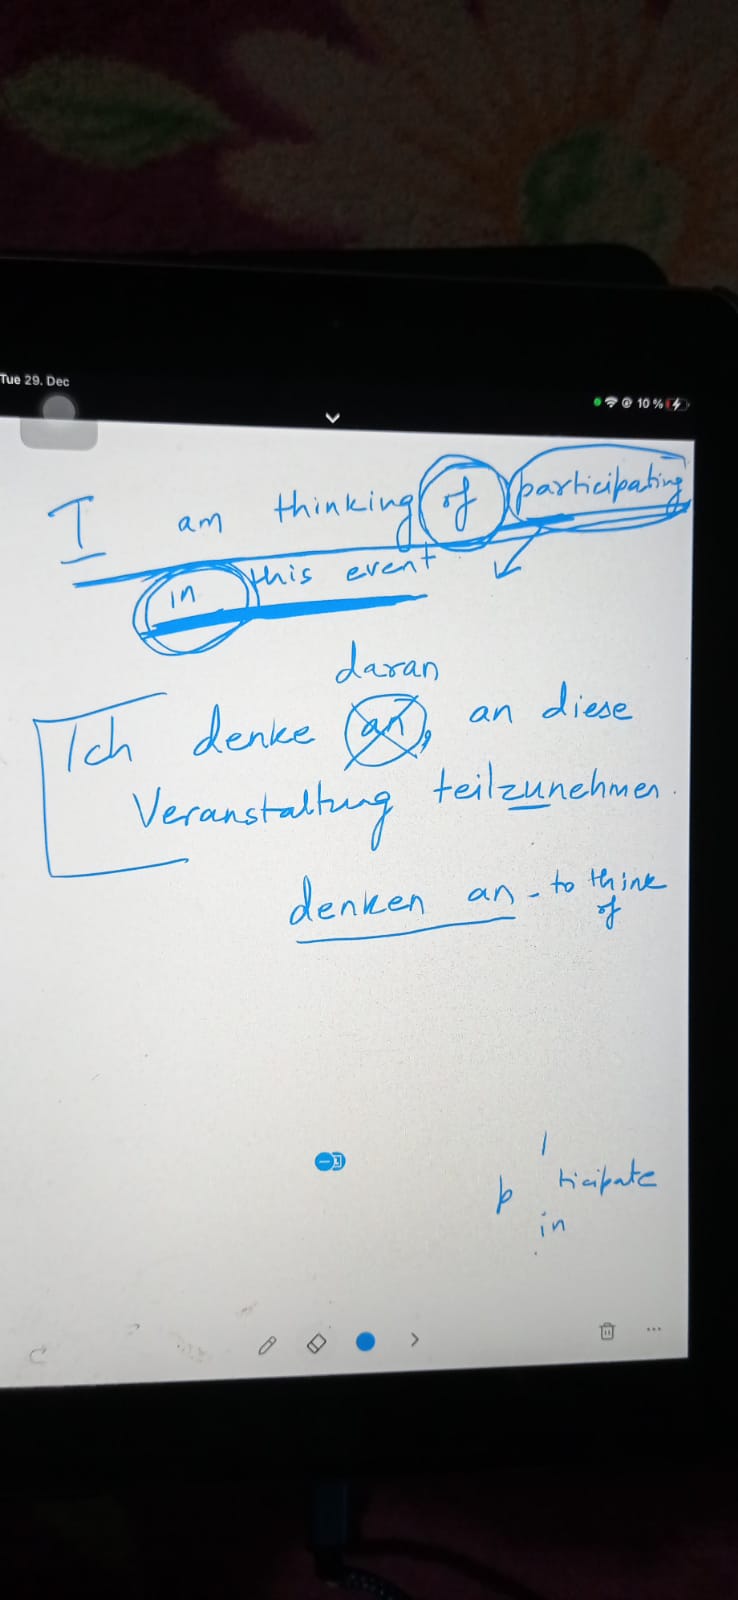 Tue 29. Dec
10 %
I am thinking of participating
in this event
daran
Ich denke an, an diese
Veranstaltung teilzunehmen.
denken an - to think
of
ticipate
in